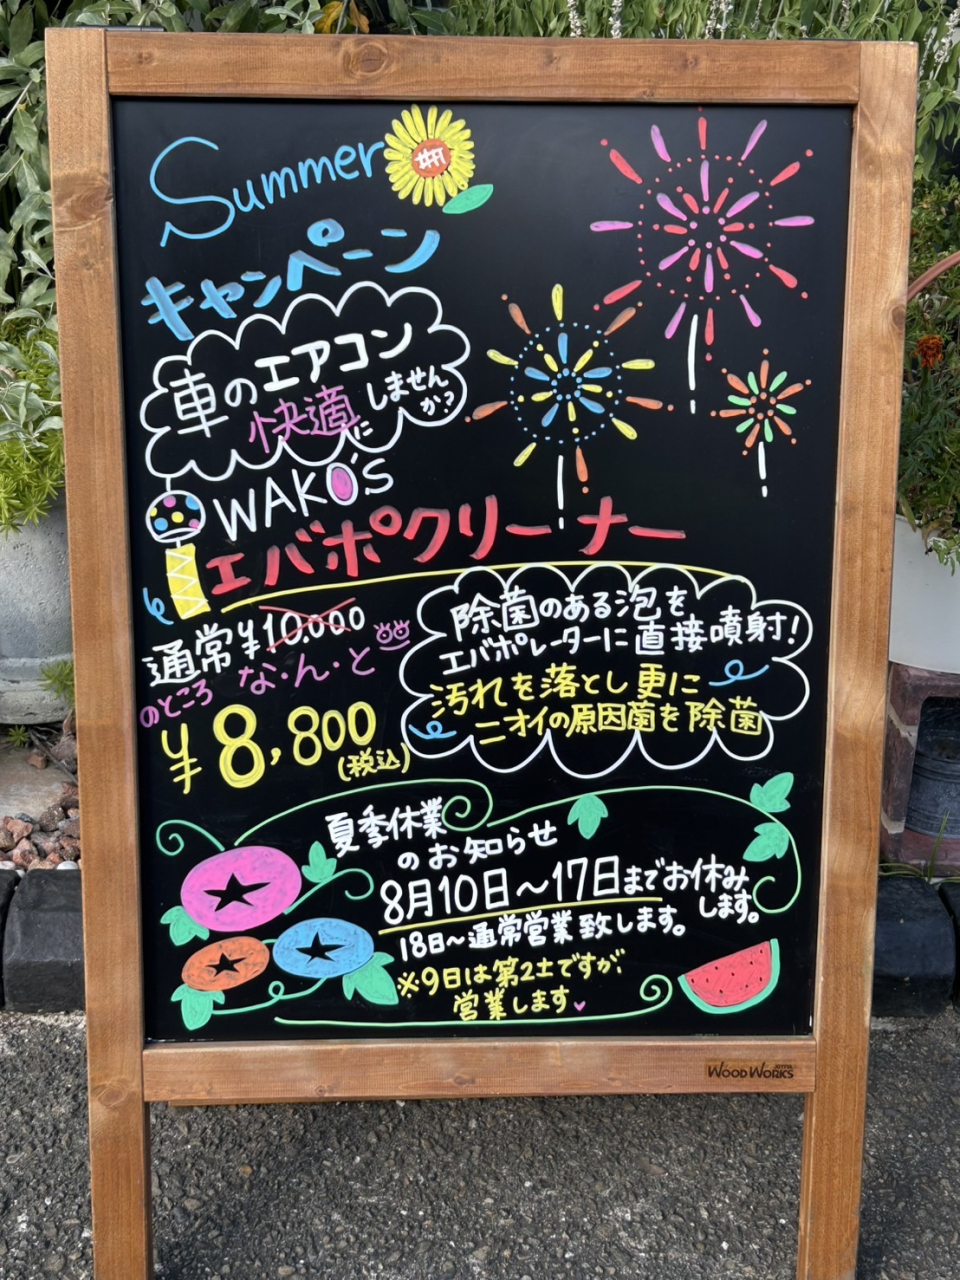 Summer
キャンペーン
車のエアコン
快適にしません
か?
WAKO'S
エバポクリーナー
通常¥10,000
のところ な・ん・と
¥8,800
(税込)
除菌のある泡を
エバポレーターに直接噴射!
汚れを落とし更に
ニオイの原因菌を除菌
夏季休業
のお知らせ
8月10日〜17日までお休み
します。
18日〜通常営業致します。
※9日は第2土ですが、
営業します
WOODWORKS